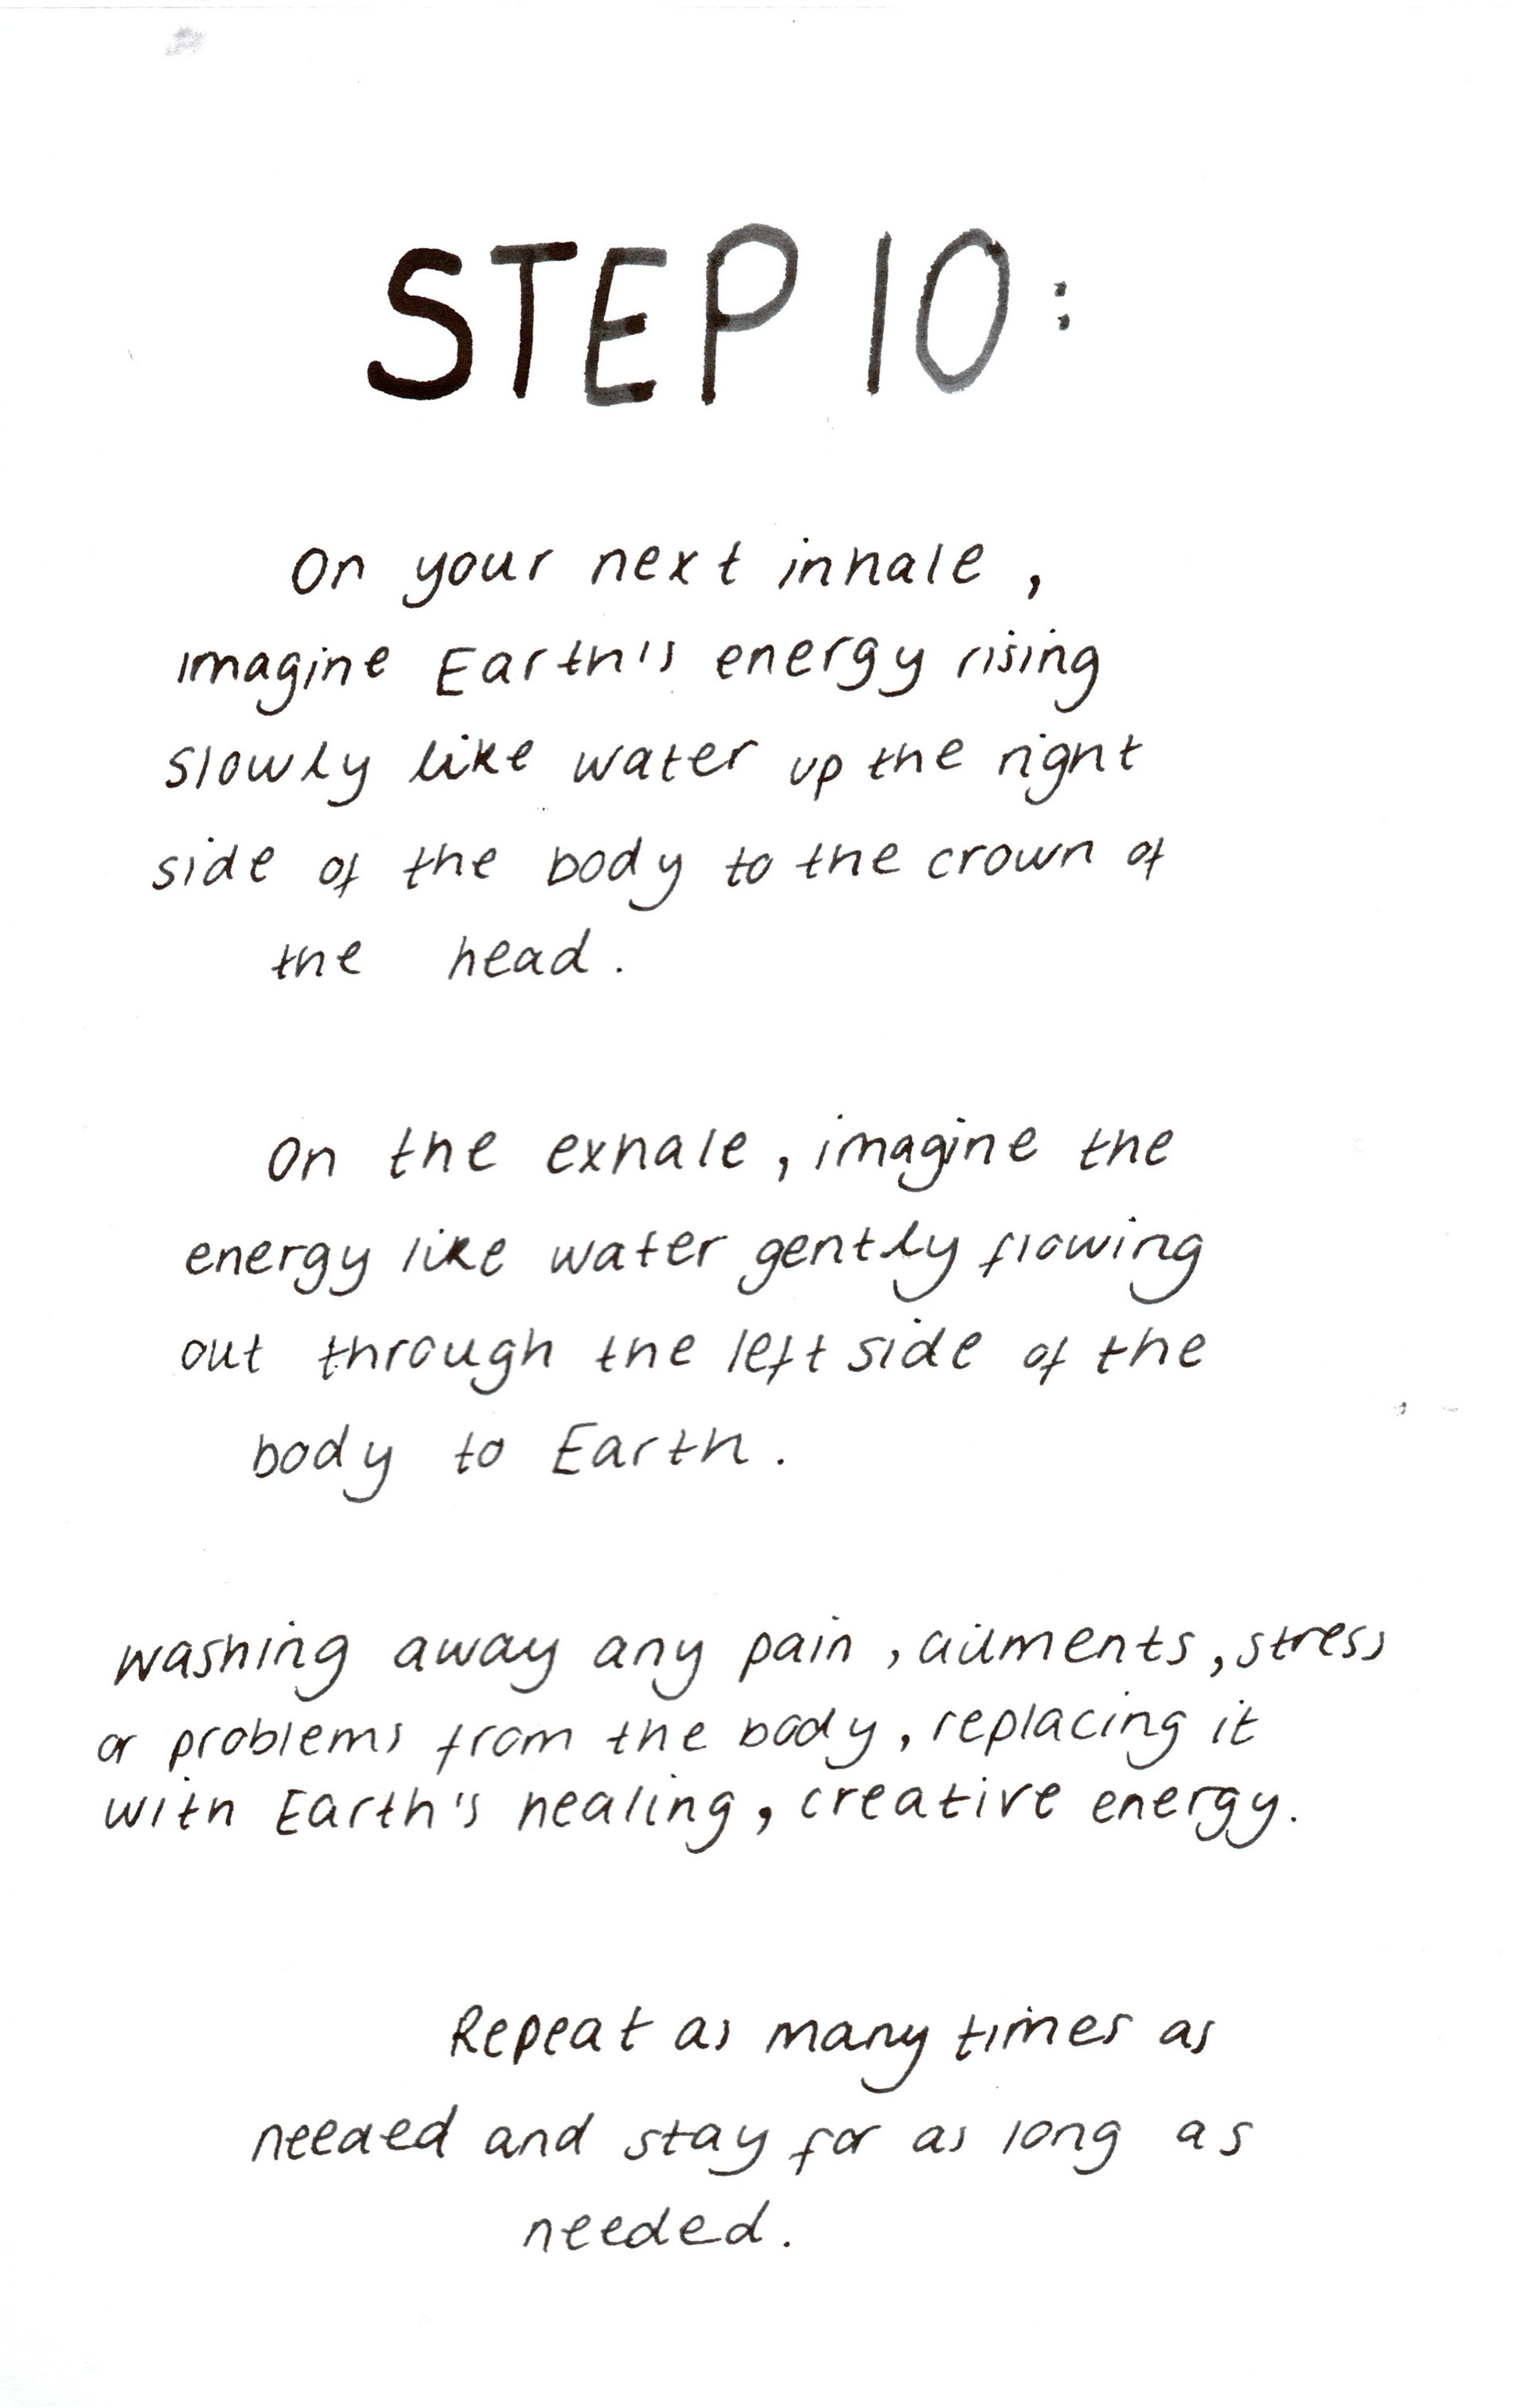 STEP 10:
On your next inhale,
imagine Earth's energy rising
slowly like water up the right
side of the body to the crown of
the head.
On the exhale, imagine the
energy like water gently flowing
out through the left side of the
body to Earth.
Washing away any pain, ailments, stress
or problems from the body, replacing it
with Earth's healing, creative energy.
Repeat as many times as
needed and stay for as long as
needed.